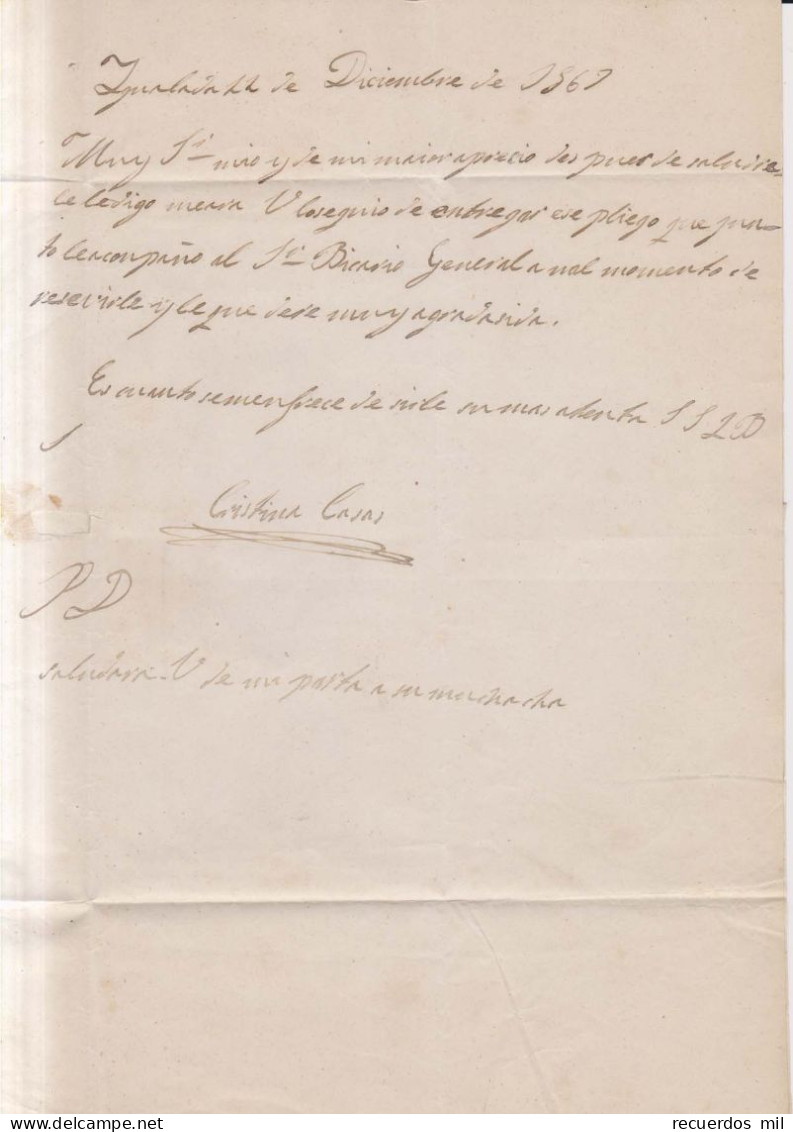 Igualada 11 de Diciembre de 1867
Muy Sr mio y de mi maior aprecio des pues de saludar
le le digo meara V losequio de entregar ese pliego que jun-
to leaconpaño al Sr Bicario General anal momento de
resevirle y le que dare muy agradasida.
Es cuanto semenfrece de sirle su mas atenta S S Q B
Cristina Casas
P D
saludara V de mi parta a su muchacha
www.delcampe.net
recuerdos mil